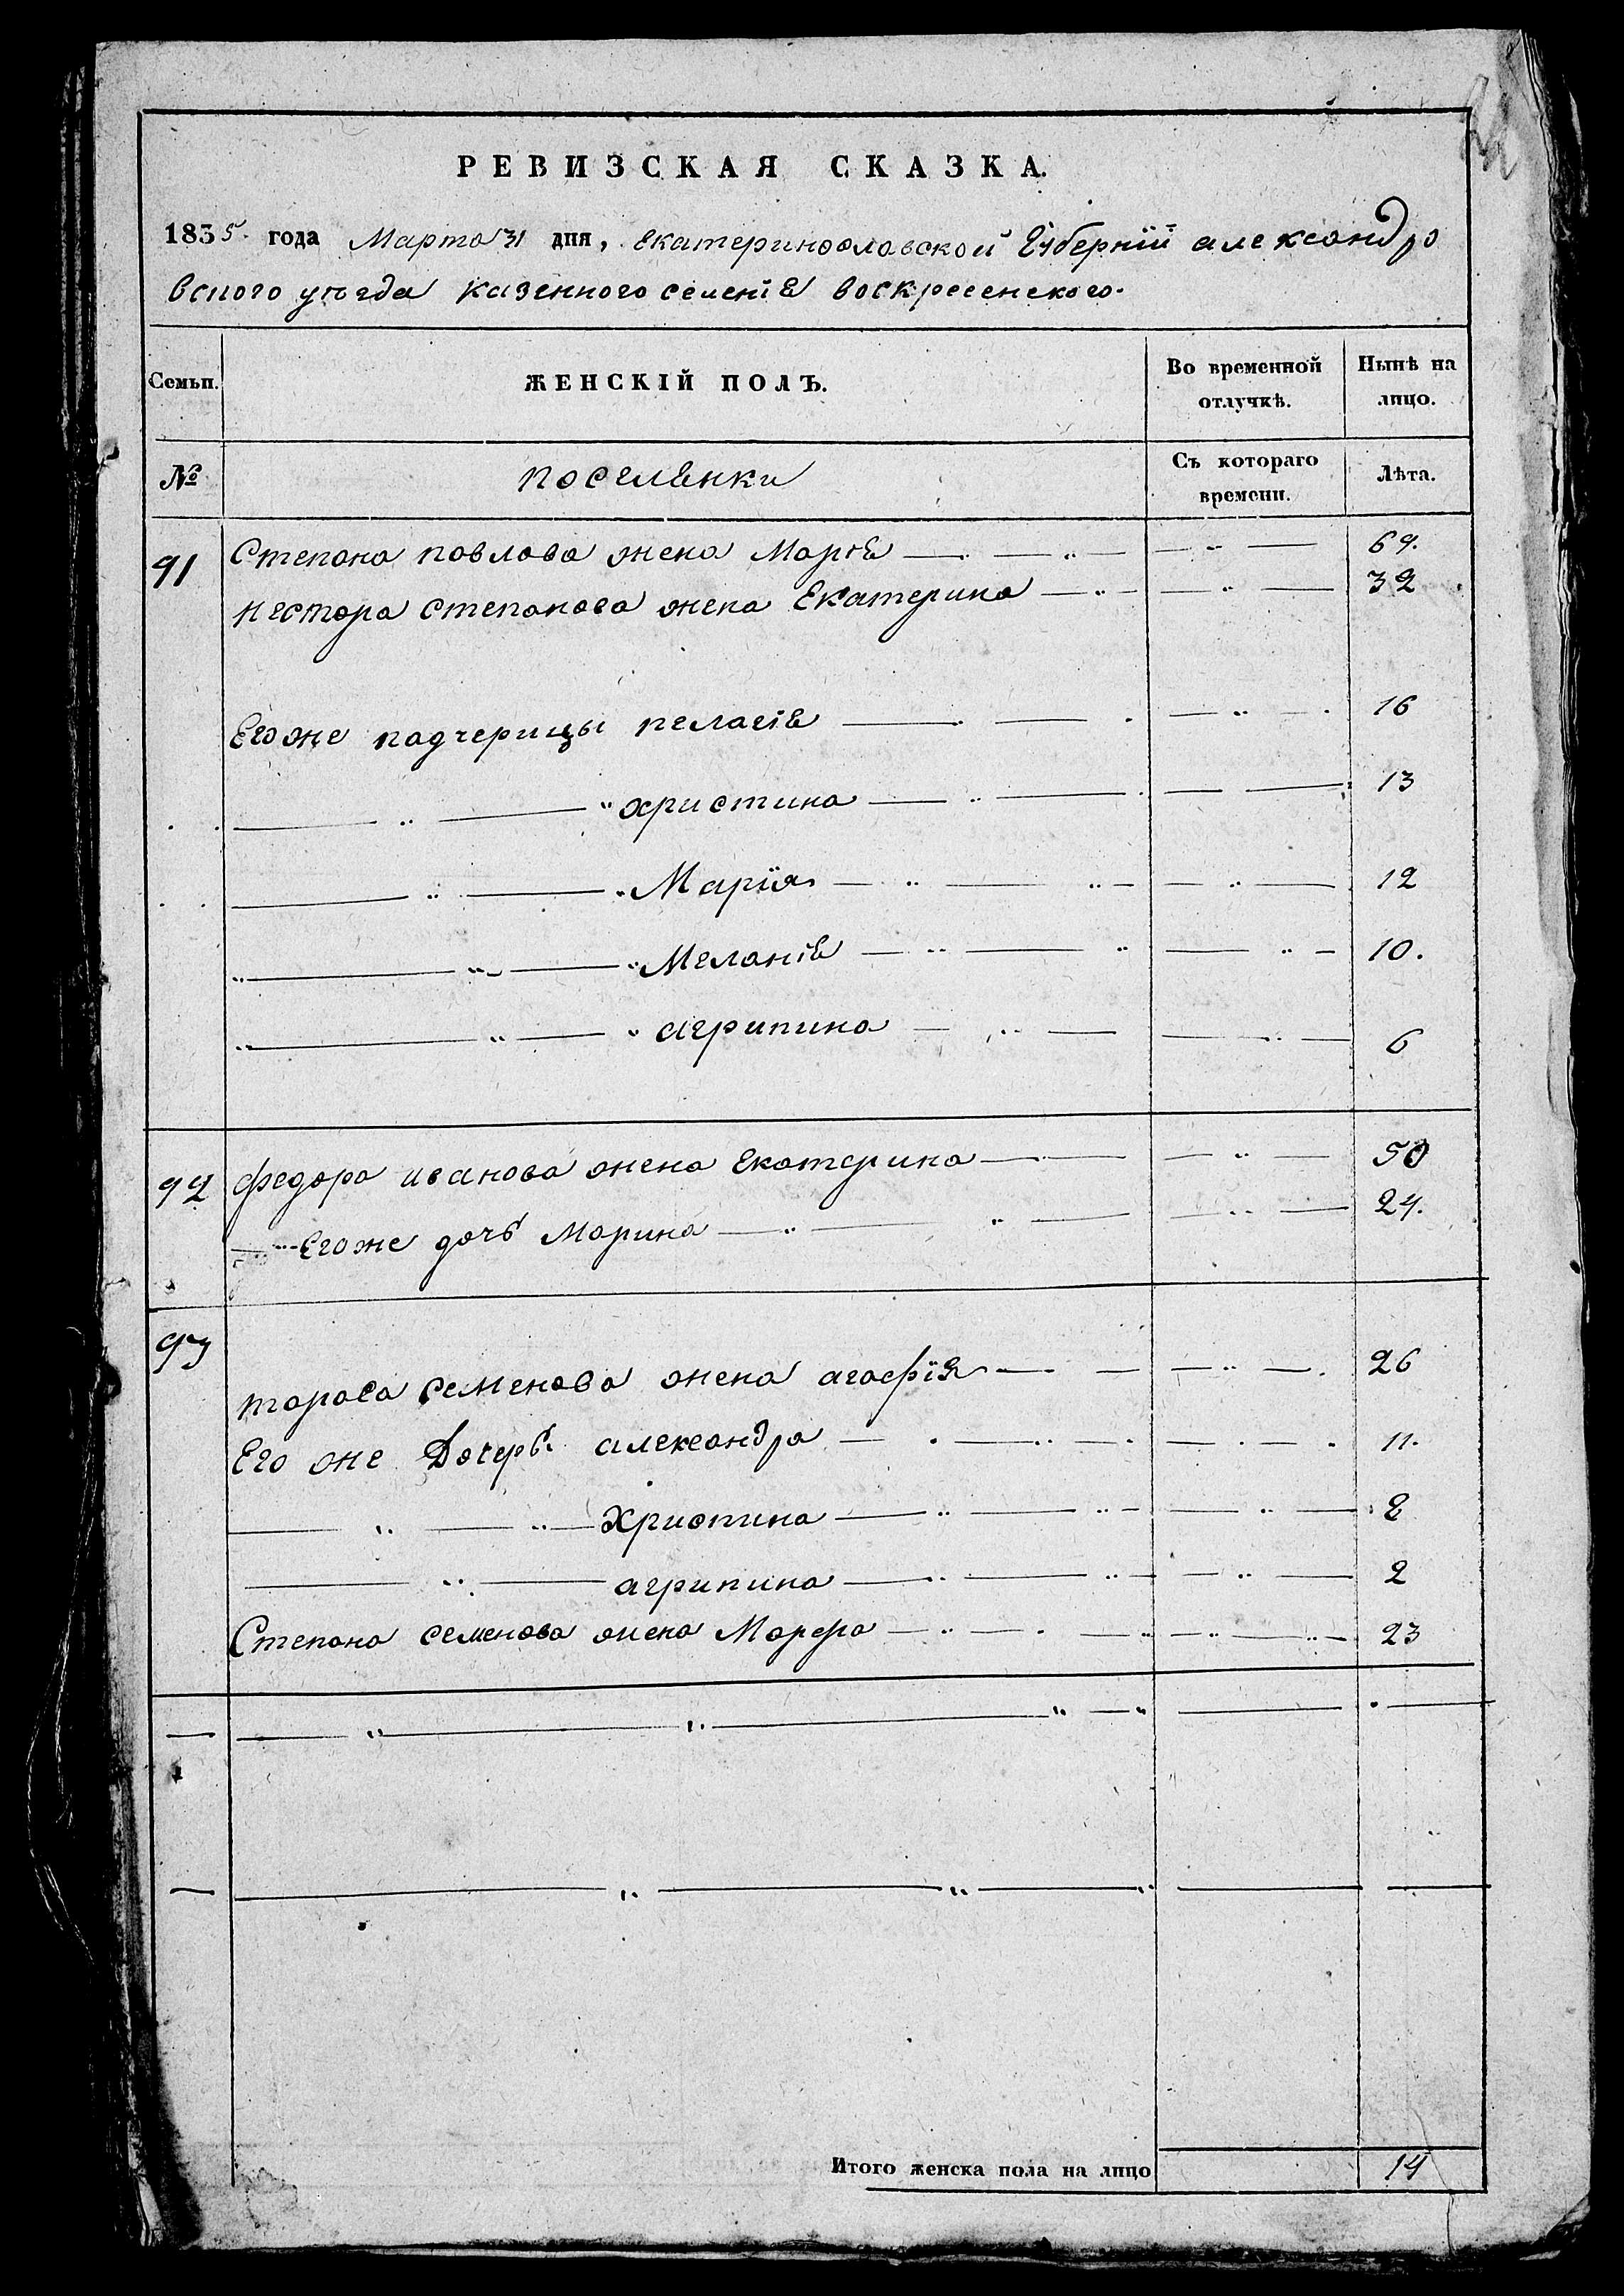 РЕВИЗСКАЯ СКАЗКА.
1835. года Марта 31 дня, екатеринославской Губерніи александро
вского уѣзда казенного селенія воскресенского.
Семьи. ЖЕНСКІЙ ПОЛЪ. Во временной отлучкѣ. Нынѣ на лицо.
№ поселянки Съ котораго времени. Лѣта.
91 Степана павлова жена Марія 69.
Нестора степанова жена Екатерина 32
Его же падчерицы пелагія 16
христина 13
Марія 12
Меланія 10.
агрипина 6
92 федора иванова жена екатерина 50
Его же дочь Марина 24.
93 тараса семенова жена агафія 26
Его же Дочерь. александра 11.
Христина 8
агрипина 2
Степана семенова жена Марфа 23
Итого женска пола на лицо 14